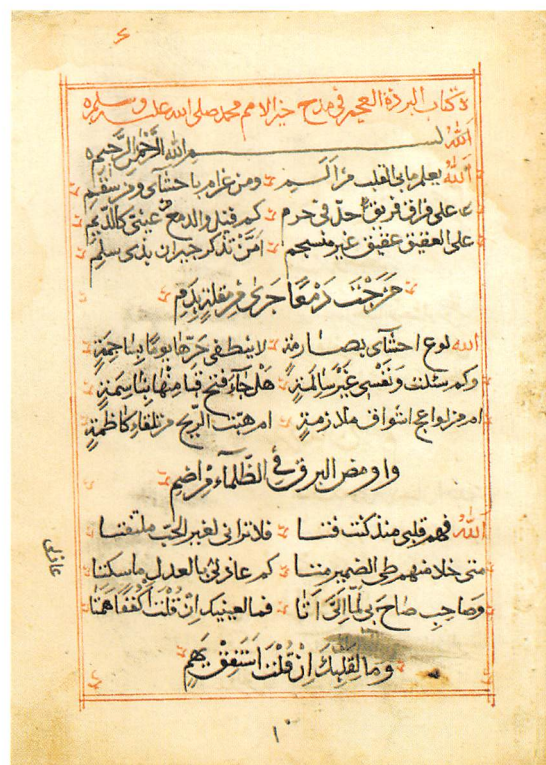 كتاب البردة العجم في مدح خير الامم محمد صلى الله عليه وسلم
الله بسم الله الرحمن الرحيم
الله يعلم ما بي القلب من الم ومن غرام باحشاي ومن سقم
على فراق فريق حل في حرم كم قتيل والدمع عيني كالديم
على العقيق عقيق غير منسجم امن تذكر جيران بذي سلم
مزجت دمعا جرى من مقلة بدم
الله لوع احشاي بصارمة لا ينطفي حرها يوما بساجمة
وكم سئلت ونفسي غير سالمة هل جاء فتح فبا منها بناسمة
ام من لواعج اشواق ملازمة ام هبت الريح من تلقاء كاظمة
واومض البرق في الظلماء من اضم
الله فهم قلبي منذ كنت فتا فلا تراني لغير الحب ملتفتا
متى خلا منهم طي الضمير متا كم عاذلي بالعدل ما سكتا
وصاحب صاح بي لما الي اتا فما لعينيك ان قلت اكففا همتا
وما لقلبك ان قلت استفق يهم
عاذلي
١٠